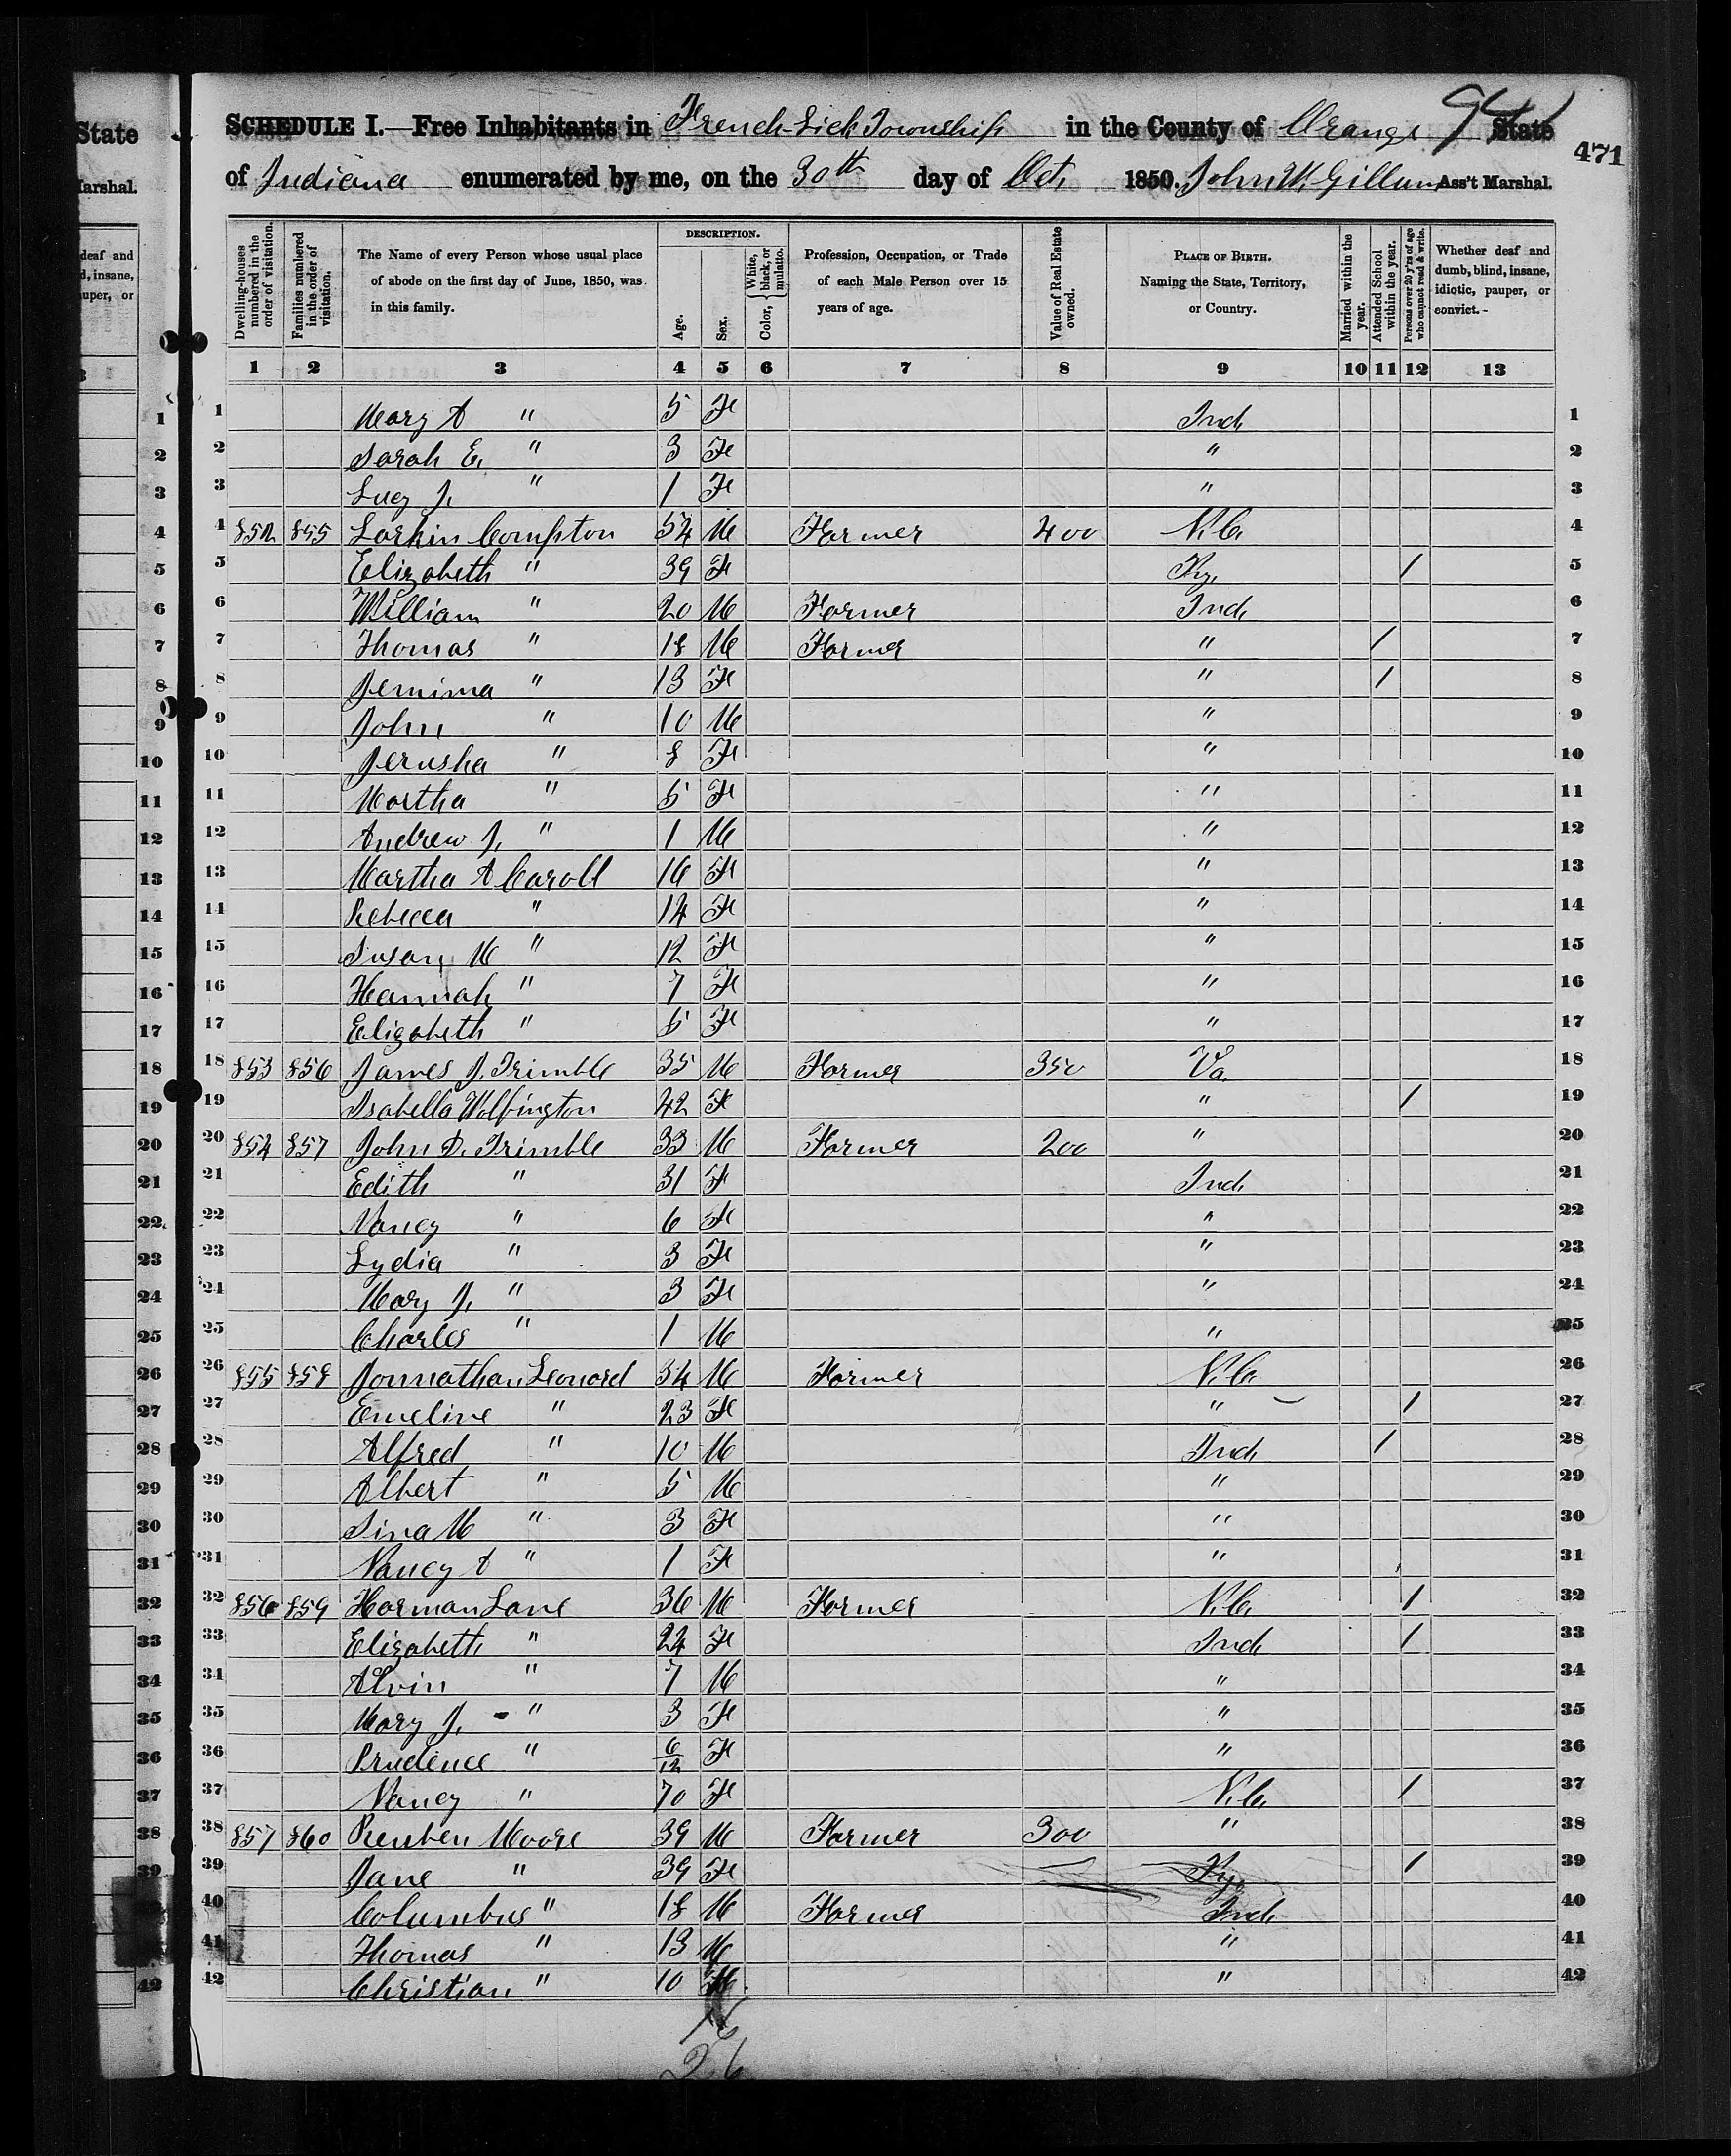 94
SCHEDULE I.—Free Inhabitants in French Lick Township in the County of Orange State
471
of Indiana enumerated by me, on the 30th day of Oct. 1850. John W Gillum Ass't Marshal.
Dwelling-houses numbered in the order of visitation. Families numbered in the order of visitation. The Name of every Person whose usual place of abode on the first day of June, 1850, was in this family. DESCRIPTION. Age. Sex. Color, { White, black, or mulatto. Profession, Occupation, or Trade of each Male Person over 15 years of age. Value of Real Estate owned. PLACE OF BIRTH. Naming the State, Territory, or Country. Married within the year. Attended School within the year. Persons over 20 y'rs of age who cannot read & write. Whether deaf and dumb, blind, insane, idiotic, pauper, or convict.
1 2 3 4 5 6 7 8 9 10 11 12 13
1 Mary A " 5 F Ind 1
2 Sarah E. " 3 F " 2
3 Lucy J. " 1 F " 3
4 852 855 Larkin Compston 54 M Farmer 400 N.C. 4
5 Elizabeth " 39 F Ky. / 5
6 William " 20 M Farmer Ind 6
7 Thomas " 18 M Farmer " / 7
8 Jemima " 13 F " / 8
9 John " 10 M " 9
10 Jerusha " 8 F " 10
11 Martha " 5 F " 11
12 Andrew J. " 1 M " 12
13 Martha A Caroll 16 F " 13
14 Rebecca " 14 F " 14
15 Susan M " 12 F " 15
16 Hannah " 7 F " 16
17 Elizabeth " 5 F " 17
18 853 856 James J. Trimble 35 M Farmer 350 Va. 18
19 Isabella Wolfington 42 F " / 19
20 854 857 John D. Trimble 33 M Farmer 200 " 20
21 Edith " 31 F Ind 21
22 Nancy " 6 F " 22
23 Lydia " 3 F " 23
24 Mary J. " 3 F " 24
25 Charles " 1 M " 25
26 855 858 Jonnathan Leonard 34 M Farmer N.C. 26
27 Emeline " 23 F " / 27
28 Alfred " 10 M Ind / 28
29 Albert " 5 M " 29
30 Sina M " 3 F " 30
31 Nancy A " 1 F " 31
32 856 859 Harman Lane 36 M Farmer N.C. / 32
33 Elizabeth " 24 F Ind / 33
34 Alvin " 7 M " 34
35 Mary J. " 3 F " 35
36 Prudence " 6/12 F " 36
37 Nancy " 70 F N.C. / 37
38 857 860 Reuben Moore 39 M Farmer 300 " 38
39 Jane " 39 F Ky. / 39
40 Columbus " 18 M Farmer Ind 40
41 Thomas " 13 M " 41
42 Christian " 10 M " 42